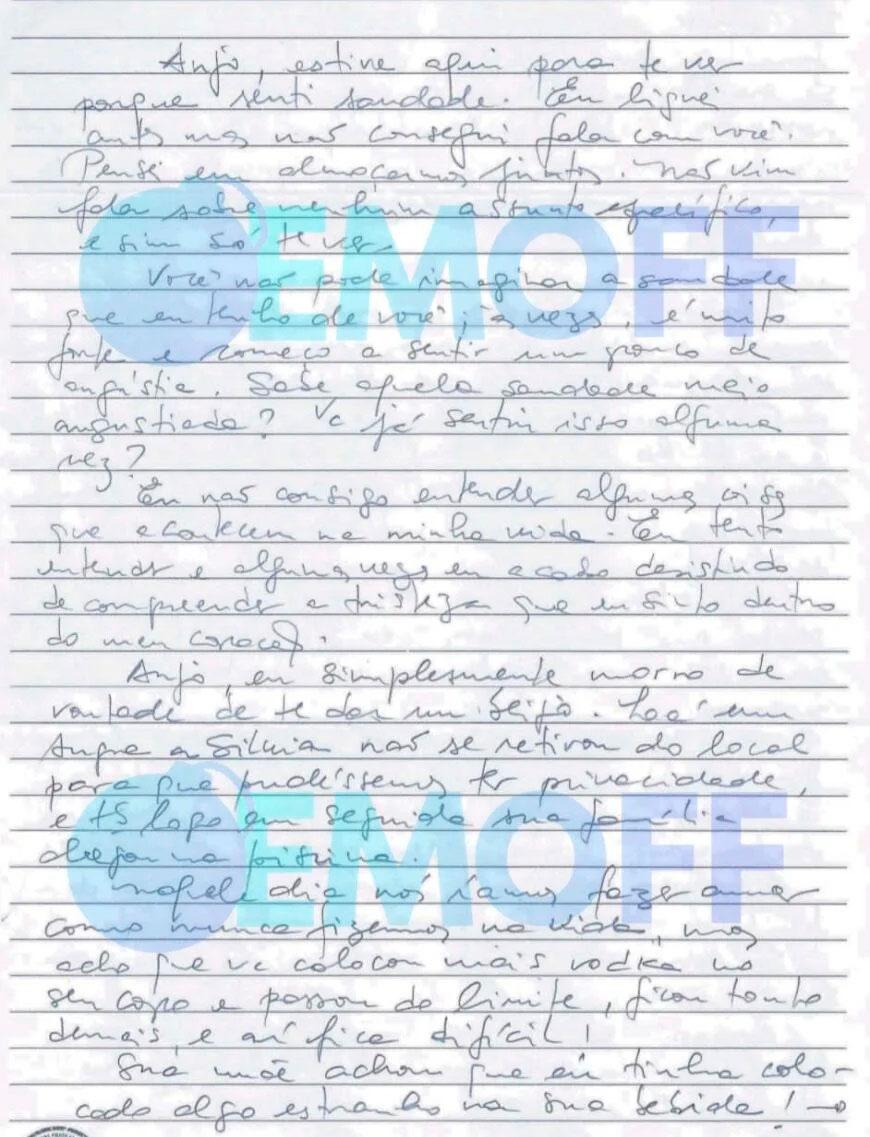 Anjo, estive aqui para te ver
porque senti saudade. Eu liguei
antes mas não consegui falar com você.
Pensei em almoçarmos juntos. Não vim
falar sobre nenhum assunto específico,
e sim só te ver.
Você não pode imaginar a saudade
que eu tenho de você; às vezes, é muito
forte e começo a sentir um pouco de
angústia. Sabe aquela saudade meio
angustiada? Vc já sentiu isso alguma
vez?
Eu não consigo entender algumas coisas
que acontecem na minha vida. Eu tento
entender e algumas vezes eu acabo desistindo
de compreender a tristeza que eu sinto dentro
do meu coração.
Anjo, eu simplesmente morro de
vontade de te dar um beijo. Lá em
Angra a Silvia não se retirou do local
para que pudéssemos ter privacidade,
e logo em seguida sua família
chegou na piscina.
Naquele dia nós íamos fazer amor
como nunca fizemos na vida, mas
acho que vc colocou mais vodka no
seu copo e passou do limite, ficou tonto
demais, e aí fica difícil!
Sua mãe achou que eu tinha colo-
cado algo estranho na sua bebida! →
EMOFF
EMOFF